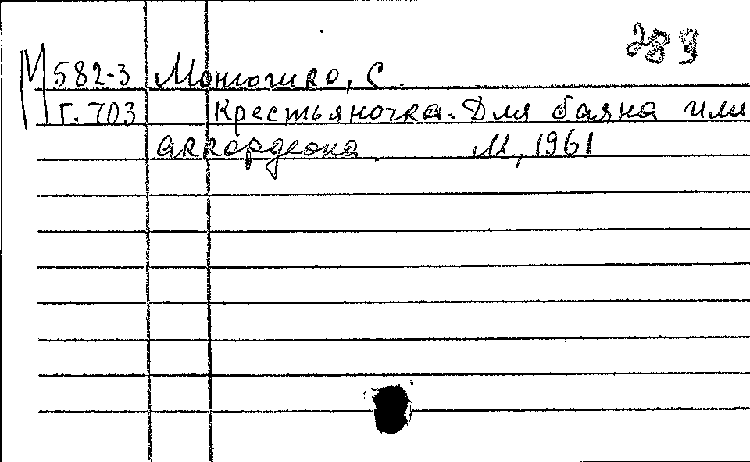 289
М 582-3 Монюшко, С.
Г. 703 Крестьяночка. Для баяна или
аккордеона М, 1961